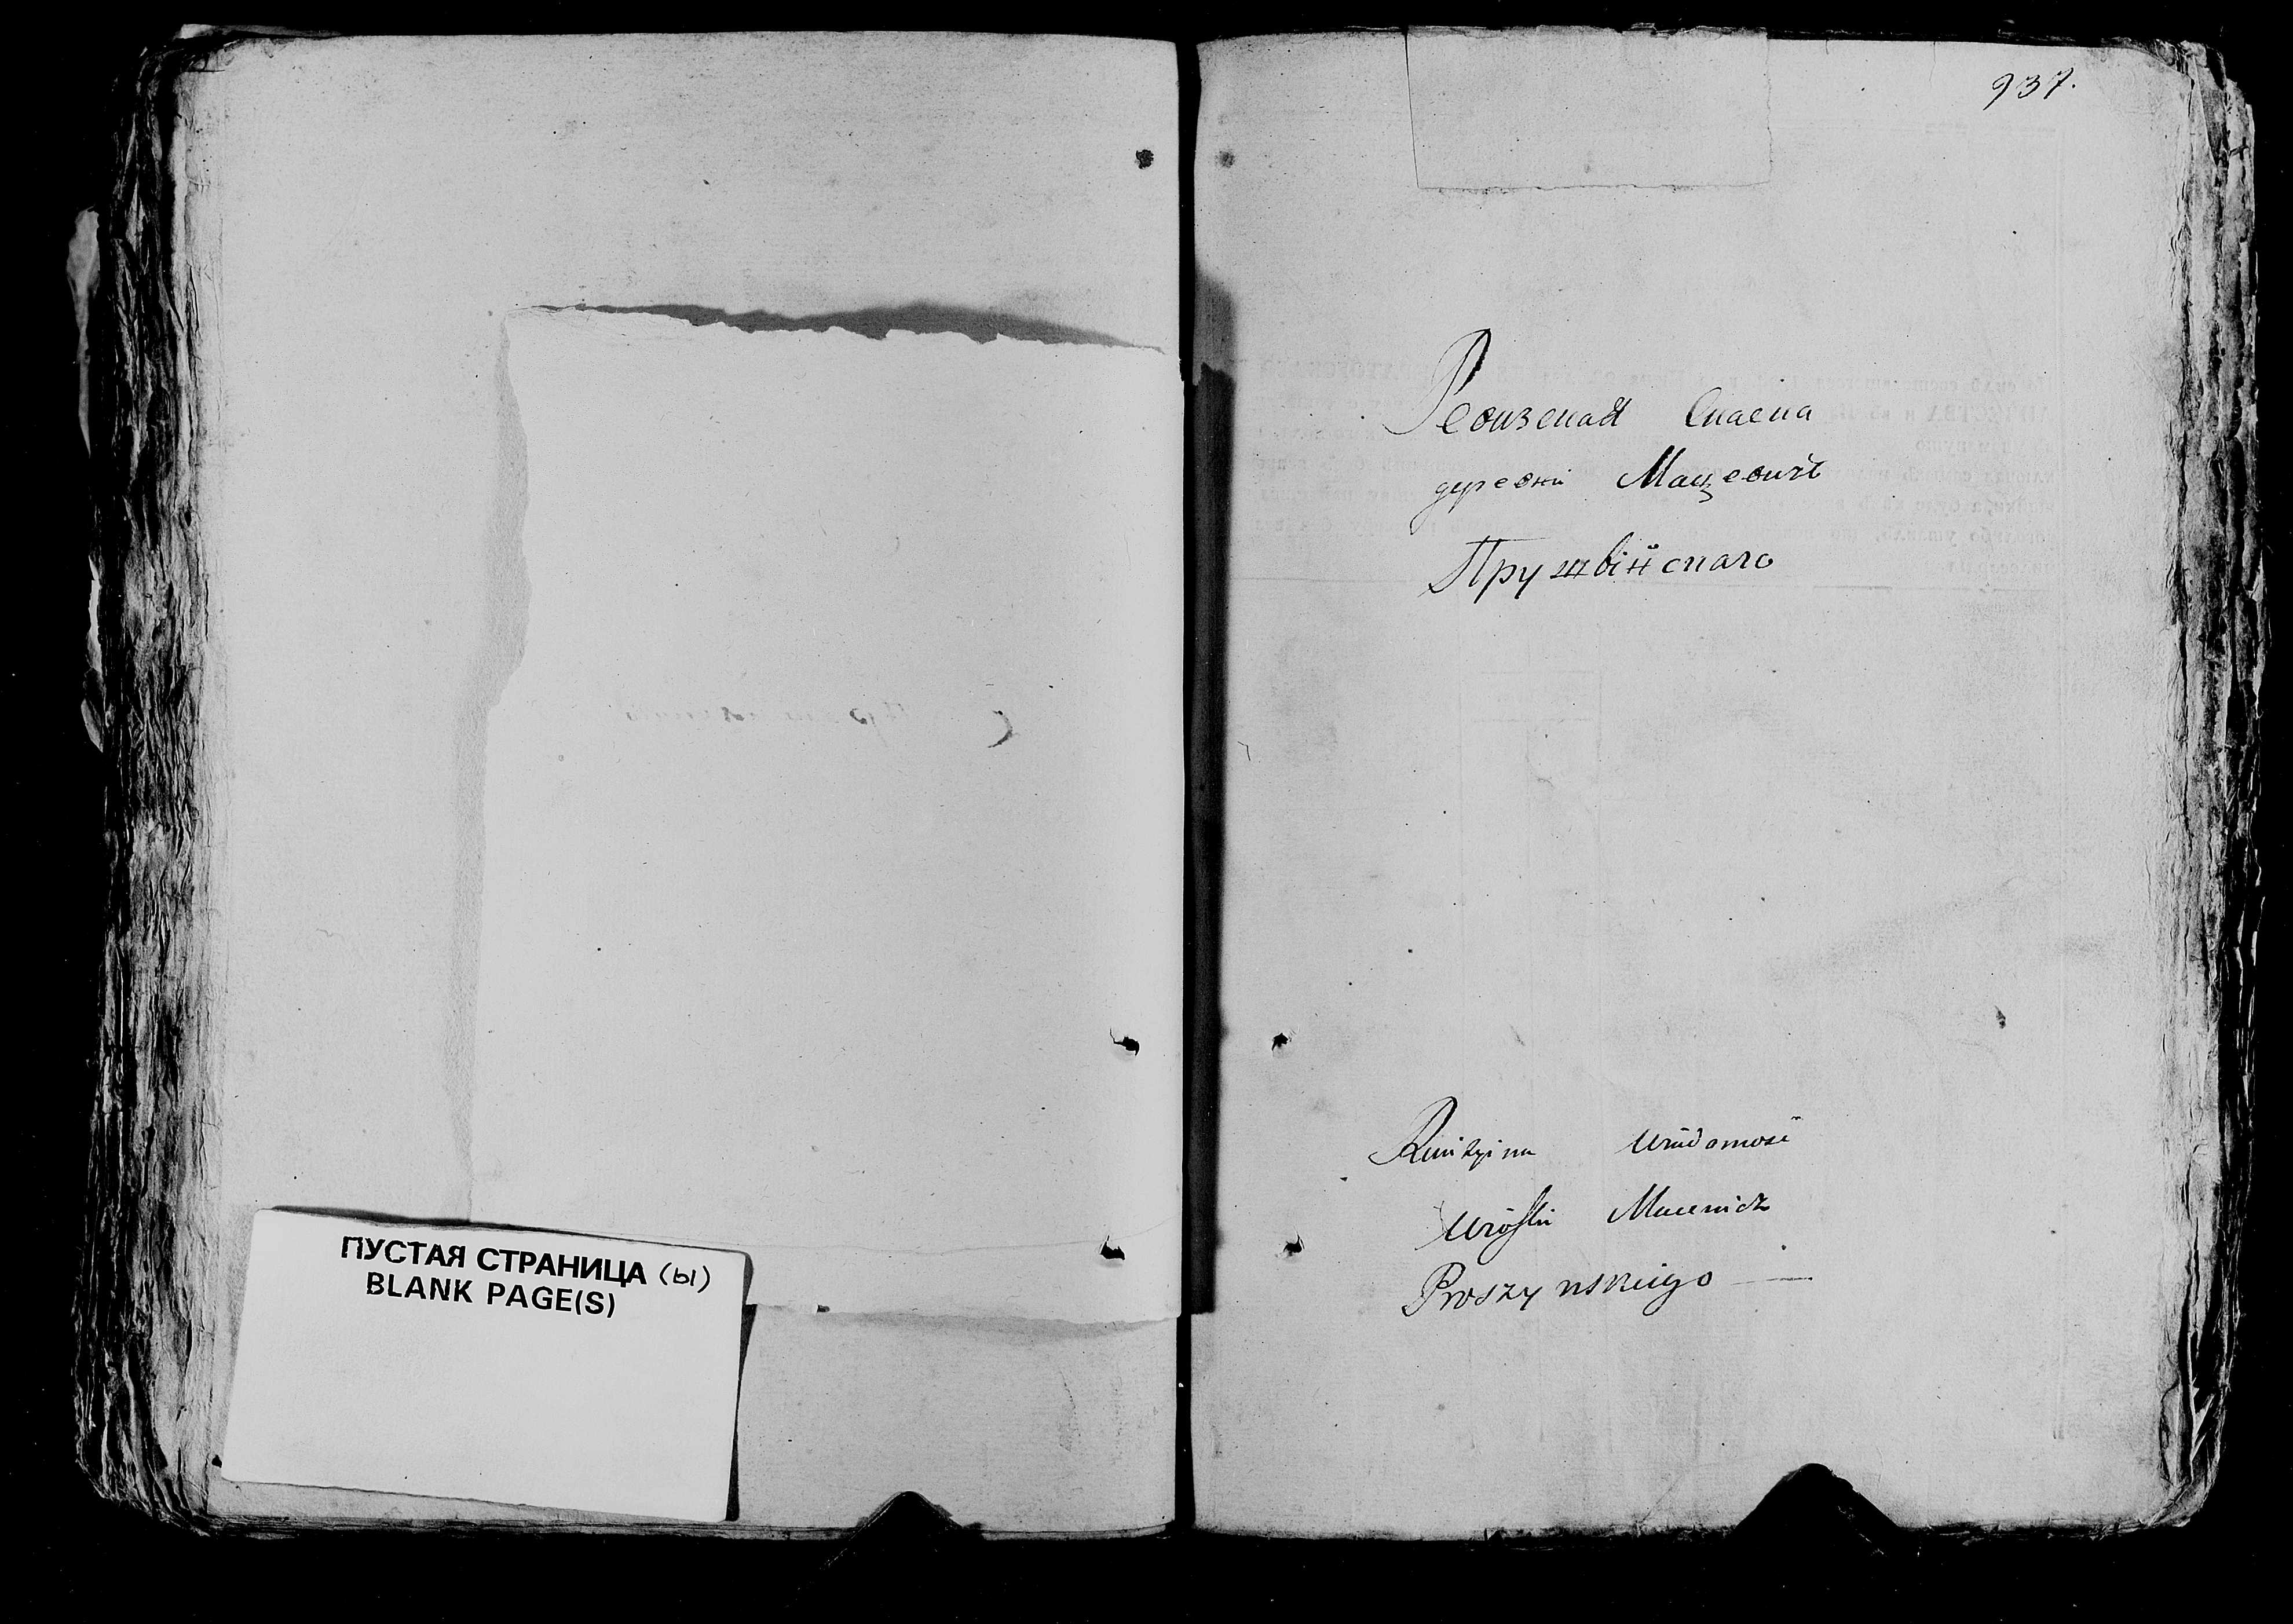 ПУСТАЯ СТРАНИЦА (ы)
BLANK PAGE(S)
937.
Ревизская Сказка
деревни Мацевичъ
Прушвінскаго
Rewizyina Wiadomość
Wioski Macewicz
Proszynskiego